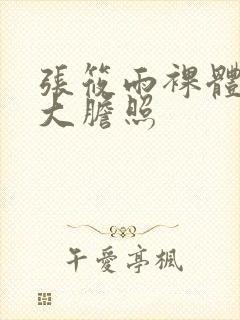 張筱雨裸體
大膽照
午愛亭楓